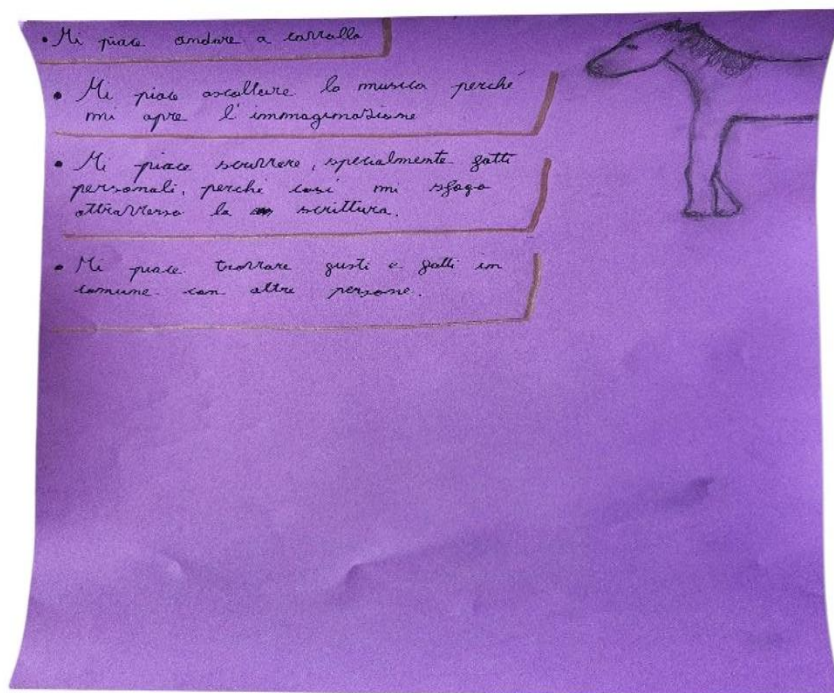 • Mi piace andare a cavallo
• Mi piace ascoltare la musica perché
mi apre l'immaginazione
• Mi piace scrivere, specialmente fatti
personali, perché così mi sfogo
attraverso la scrittura.
• Mi piace trovare gusti e fatti in
comune con altre persone.